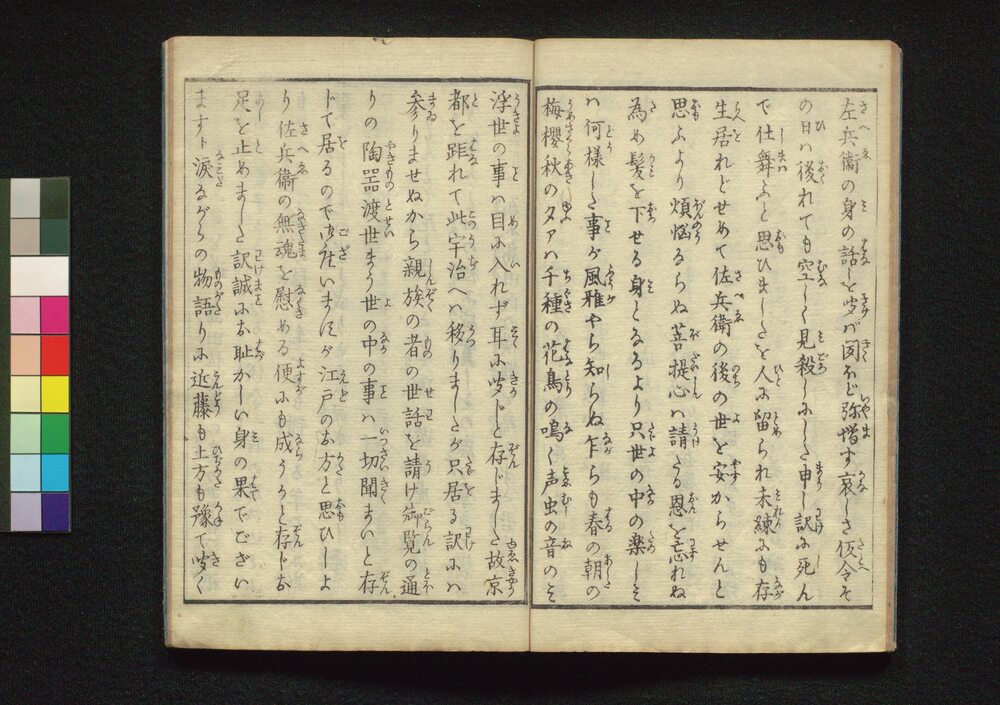 左兵衛の身の話しを聞ば聞ほど弥増す哀しさ仮令そ
の日ハ後れても空しく見殺しにした申し訳に死ん
で仕舞ふと思ひましたを人に留られ未練にも存
生居れどせめて佐兵衛の後の世を安からせんと
思ふより煩悩ならぬ菩提心ハ請たる恩を忘れぬ
為め髪を下せる身となるより只世の中の楽しミ
ハ何様した事が風雅やら知らね乍らも春の朝の
梅櫻秋の夕アハ千種の花鳥の鳴く声虫の音のミ
浮世の事ハ目に入れず耳に聞じと存じました故京
都を距れて此宇治へ移りましたが只居る訳にハ
参りませぬから親族の者の世話を請け御覧の通
りの陶器渡世まう世の中の事ハ一切聞まいと存
じて居るので御座いますが江戸のお方と思ひしよ
り佐兵衛の無魂を慰める便にも成うかと存じお
足を止めました訳誠にお恥かしい身の果でござい
ますト涙ながらの物語りに近藤も土方も豫て聞く